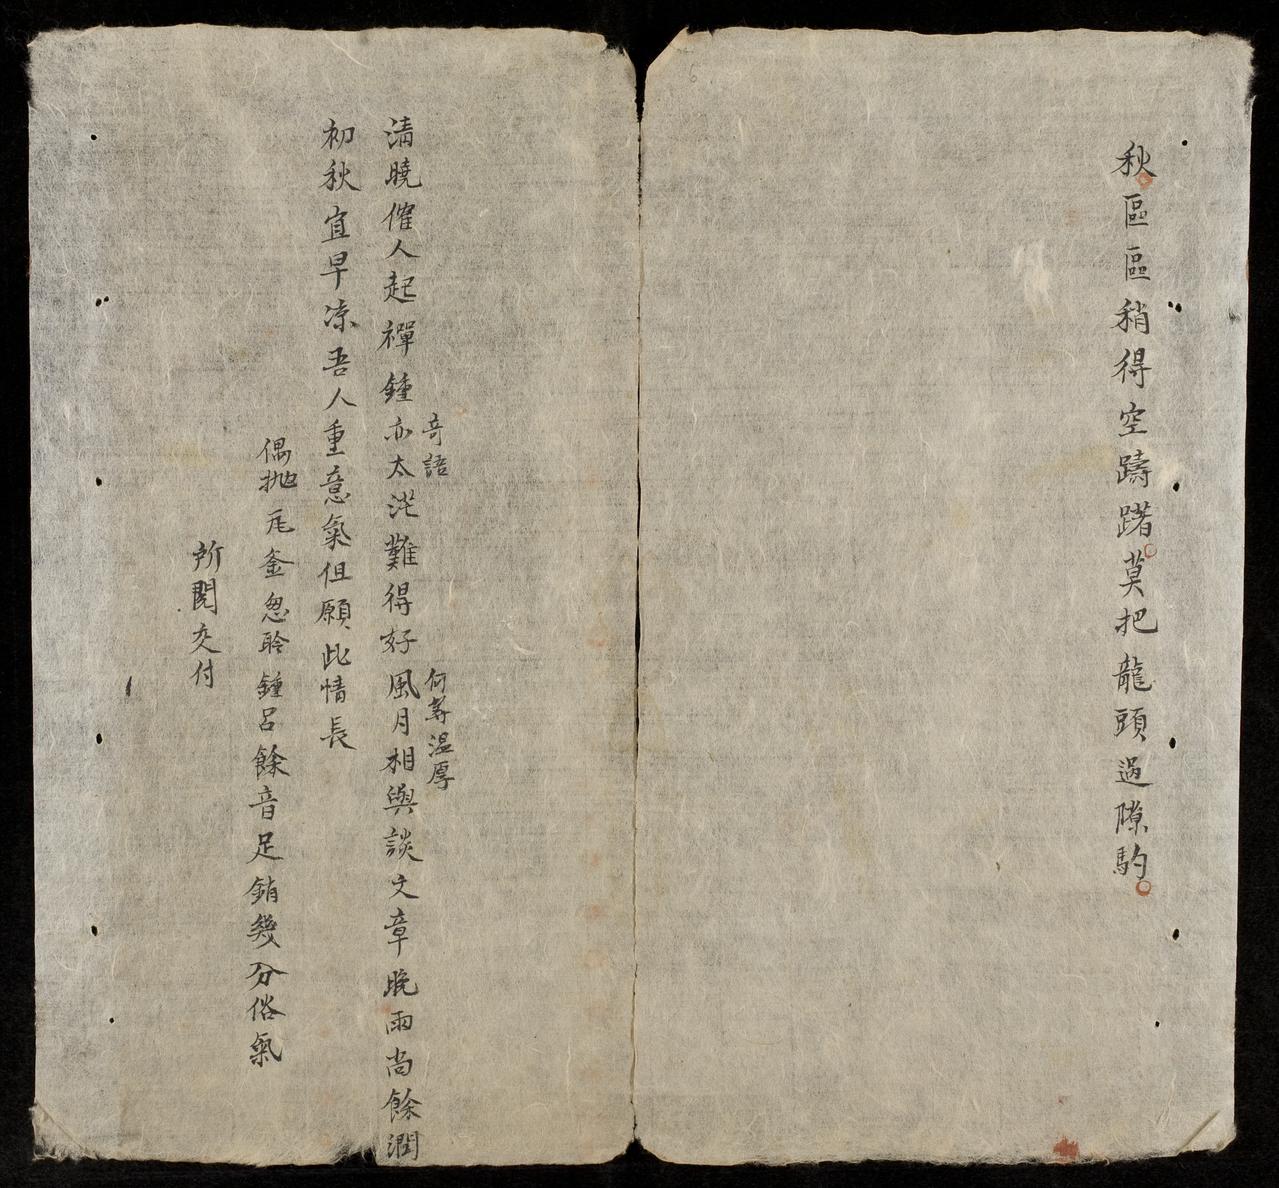 秋區區稍得空躊躇莫把龍頭過隙駒
奇語
何等温厚
清曉催人起禪鍾亦太茫難得好風月相與談文章晚雨尚餘潤
初秋宜早凉吾人重意氣但願此情長
偶抛瓦釜忽聆鍾呂餘音足銷幾分俗氣
所閱交付